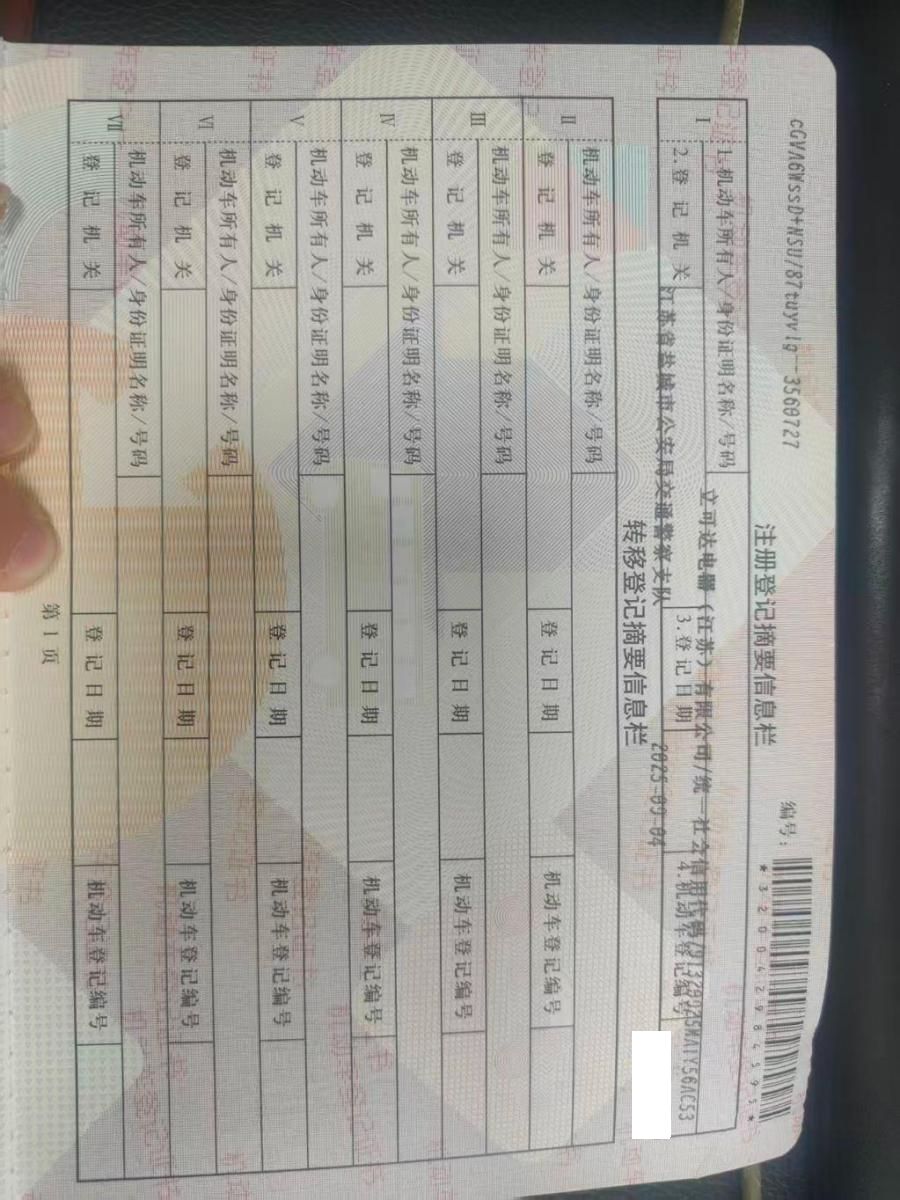 cGVA6WssD+NSU/87tuyvlg--3560727
编号：
*320042984595*
注册登记摘要信息栏
I 1.机动车所有人/身份证明名称/号码 立可达电器（江苏）有限公司/统一社会信用代码/
2.登记机关 江苏省盐城市公安局交通警察支队 3.登记日期 2025-09-04 4.机动车登记编号
转移登记摘要信息栏
II 机动车所有人/身份证明名称/号码
登记机关 登记日期 机动车登记编号
III 机动车所有人/身份证明名称/号码
登记机关 登记日期 机动车登记编号
IV 机动车所有人/身份证明名称/号码
登记机关 登记日期 机动车登记编号
V 机动车所有人/身份证明名称/号码
登记机关 登记日期 机动车登记编号
VI 机动车所有人/身份证明名称/号码
登记机关 登记日期 机动车登记编号
VII 机动车所有人/身份证明名称/号码
登记机关 登记日期 机动车登记编号
第1页